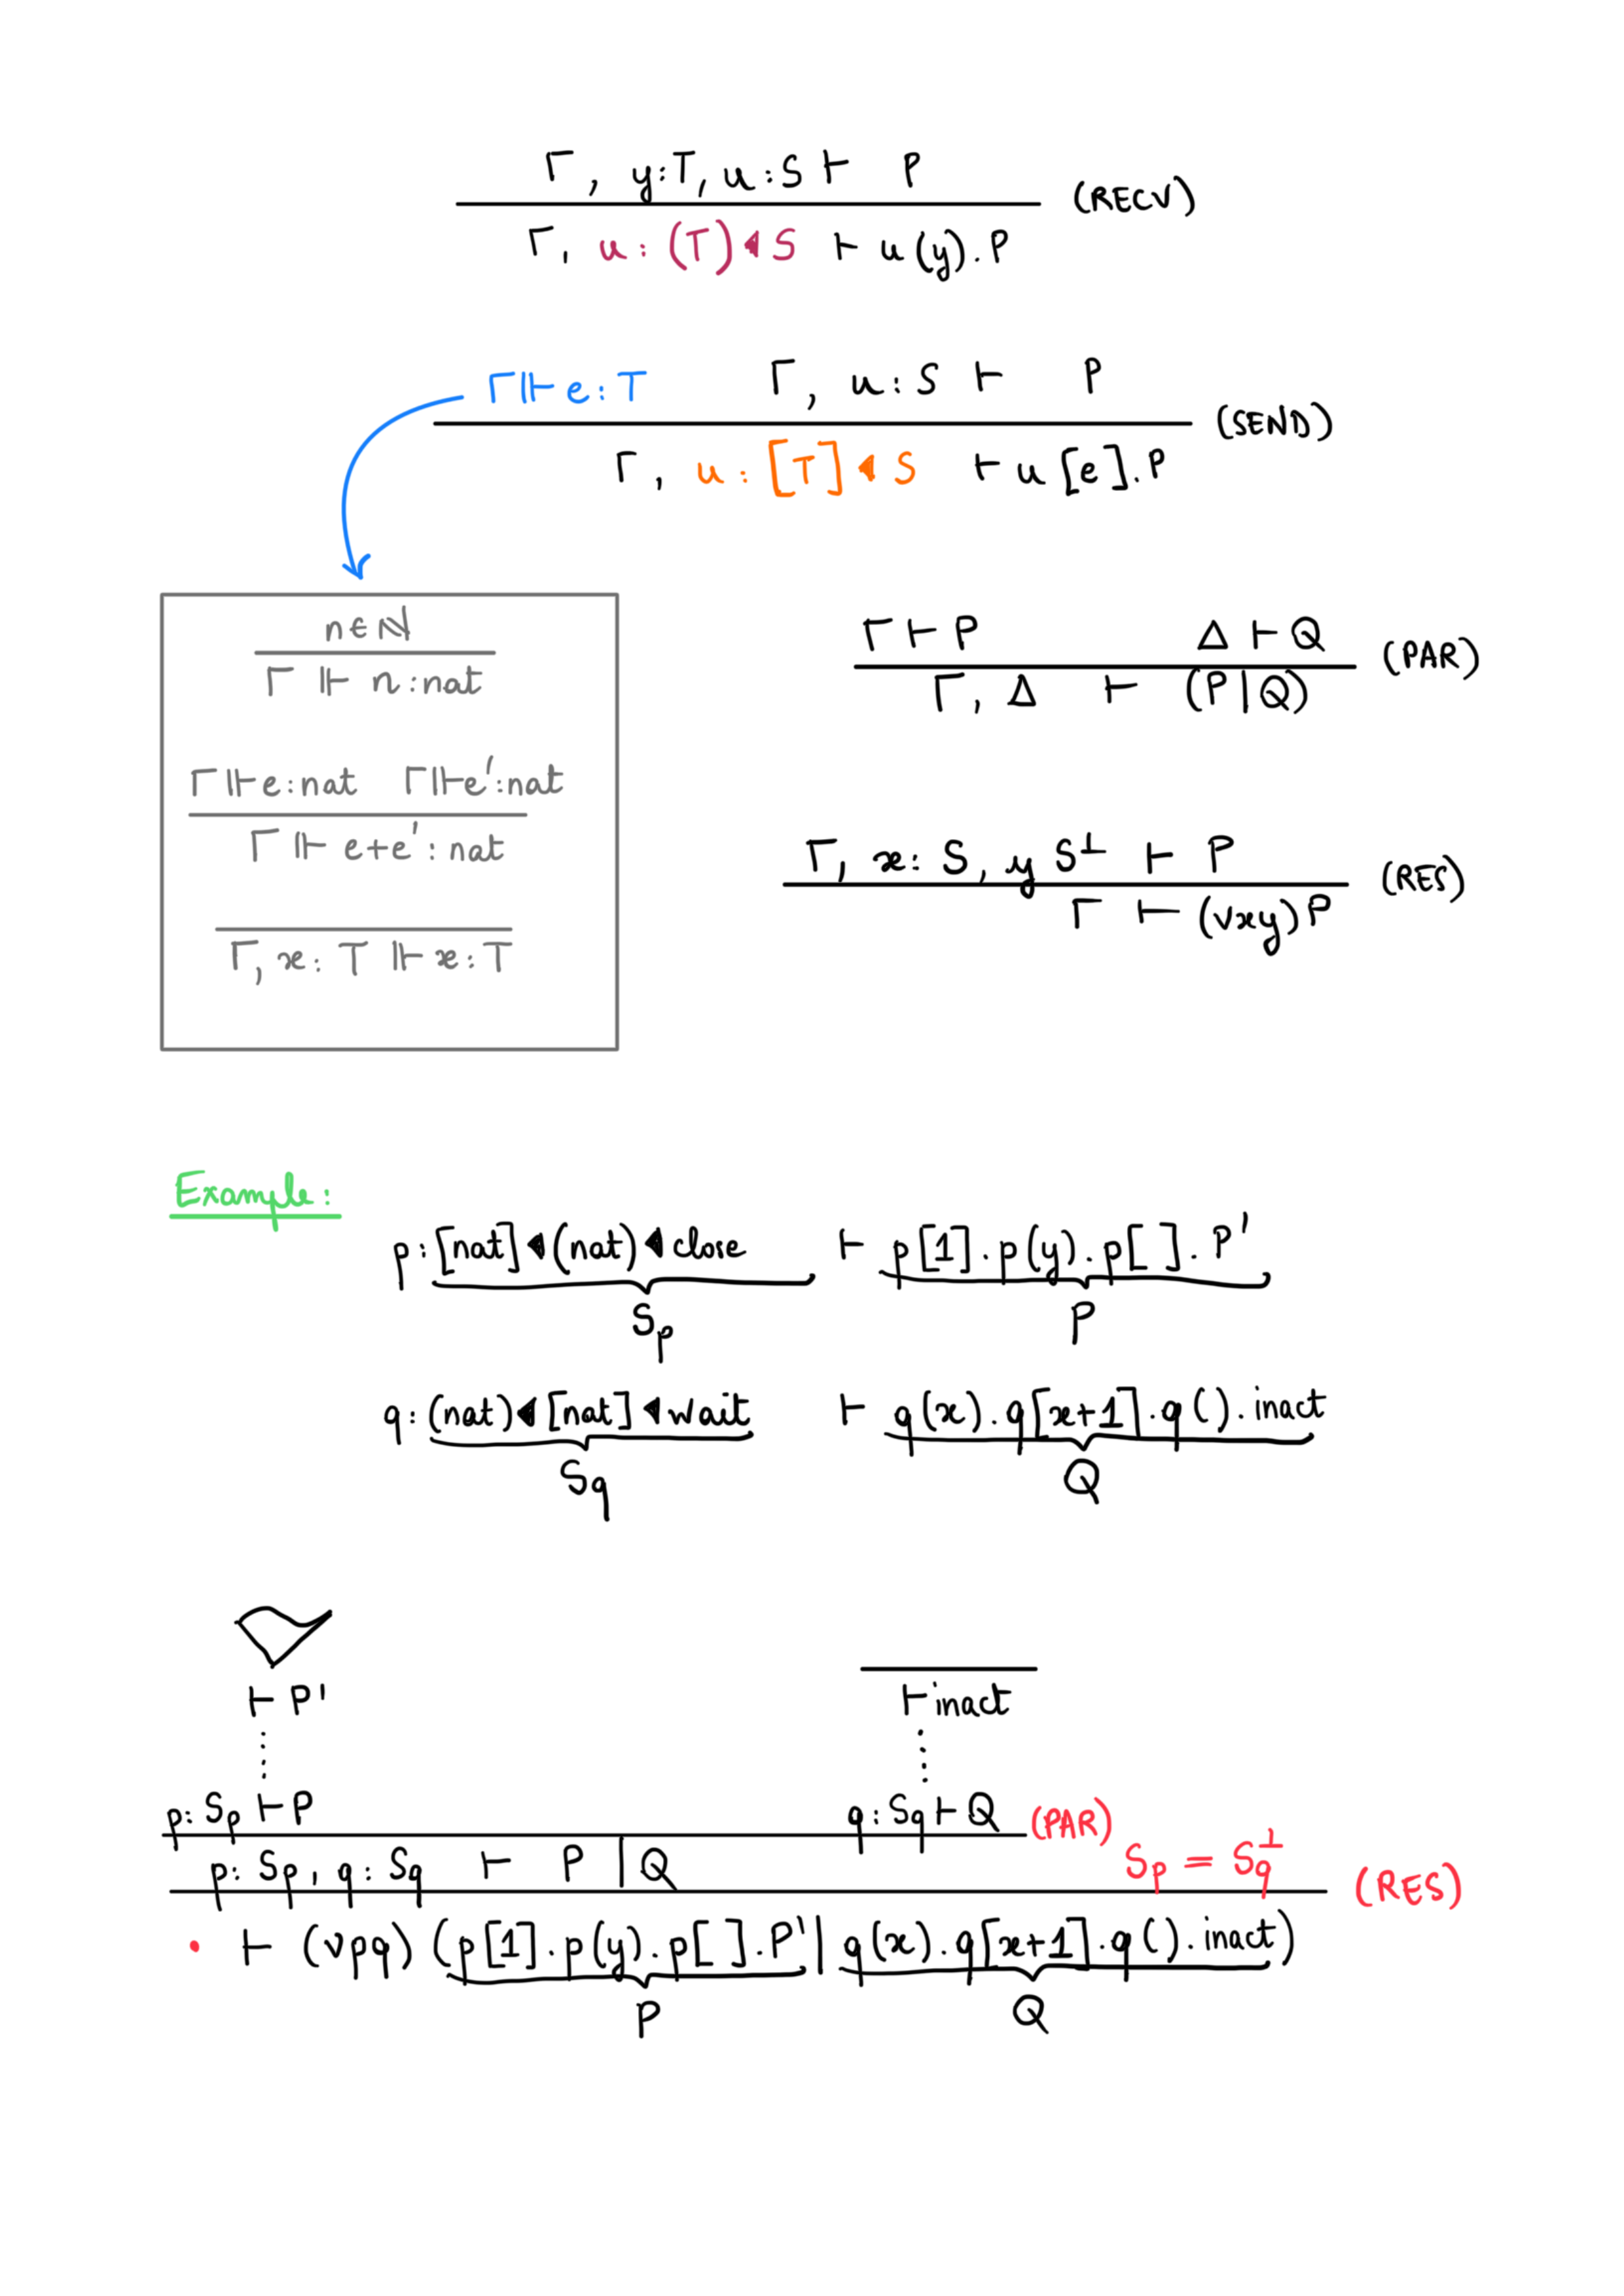 Γ, y:T, u:S ⊢ P
(RECV)
Γ, u: (T) ◂ S ⊢ u(y).P
Γ ⊩ e:T Γ, u:S ⊢ P
(SEND)
Γ, u: [T] ◂ S ⊢ u[e].P
n ∈ ℕ
Γ ⊩ n:nat
Γ ⊩ e:nat Γ ⊩ e':nat
Γ ⊩ e+e': nat
Γ, x: T ⊩ x:T
Γ ⊢ P Δ ⊢ Q
(PAR)
Γ, Δ ⊢ (P|Q)
Γ, x: S, y S⊥ ⊢ P
(RES)
Γ ⊢ (νxy)P
Example:
p: [nat] ◂ (nat) ◂ close ⊢ p[1].p(y).p[ ].P'
Sp P
q: (nat) ◂ [nat] ◂ wait ⊢ q(x).q[x+1].q().inact
Sq Q
⊢ P' ⊢ inact
p: Sp ⊢ P q: Sq ⊢ Q (PAR)
p: Sp, q: Sq ⊢ P | Q Sp = Sq⊥ (RES)
• ⊢ (νpq) (p[1].p(y).p[ ].P' | q(x).q[x+1].q().inact)
P Q